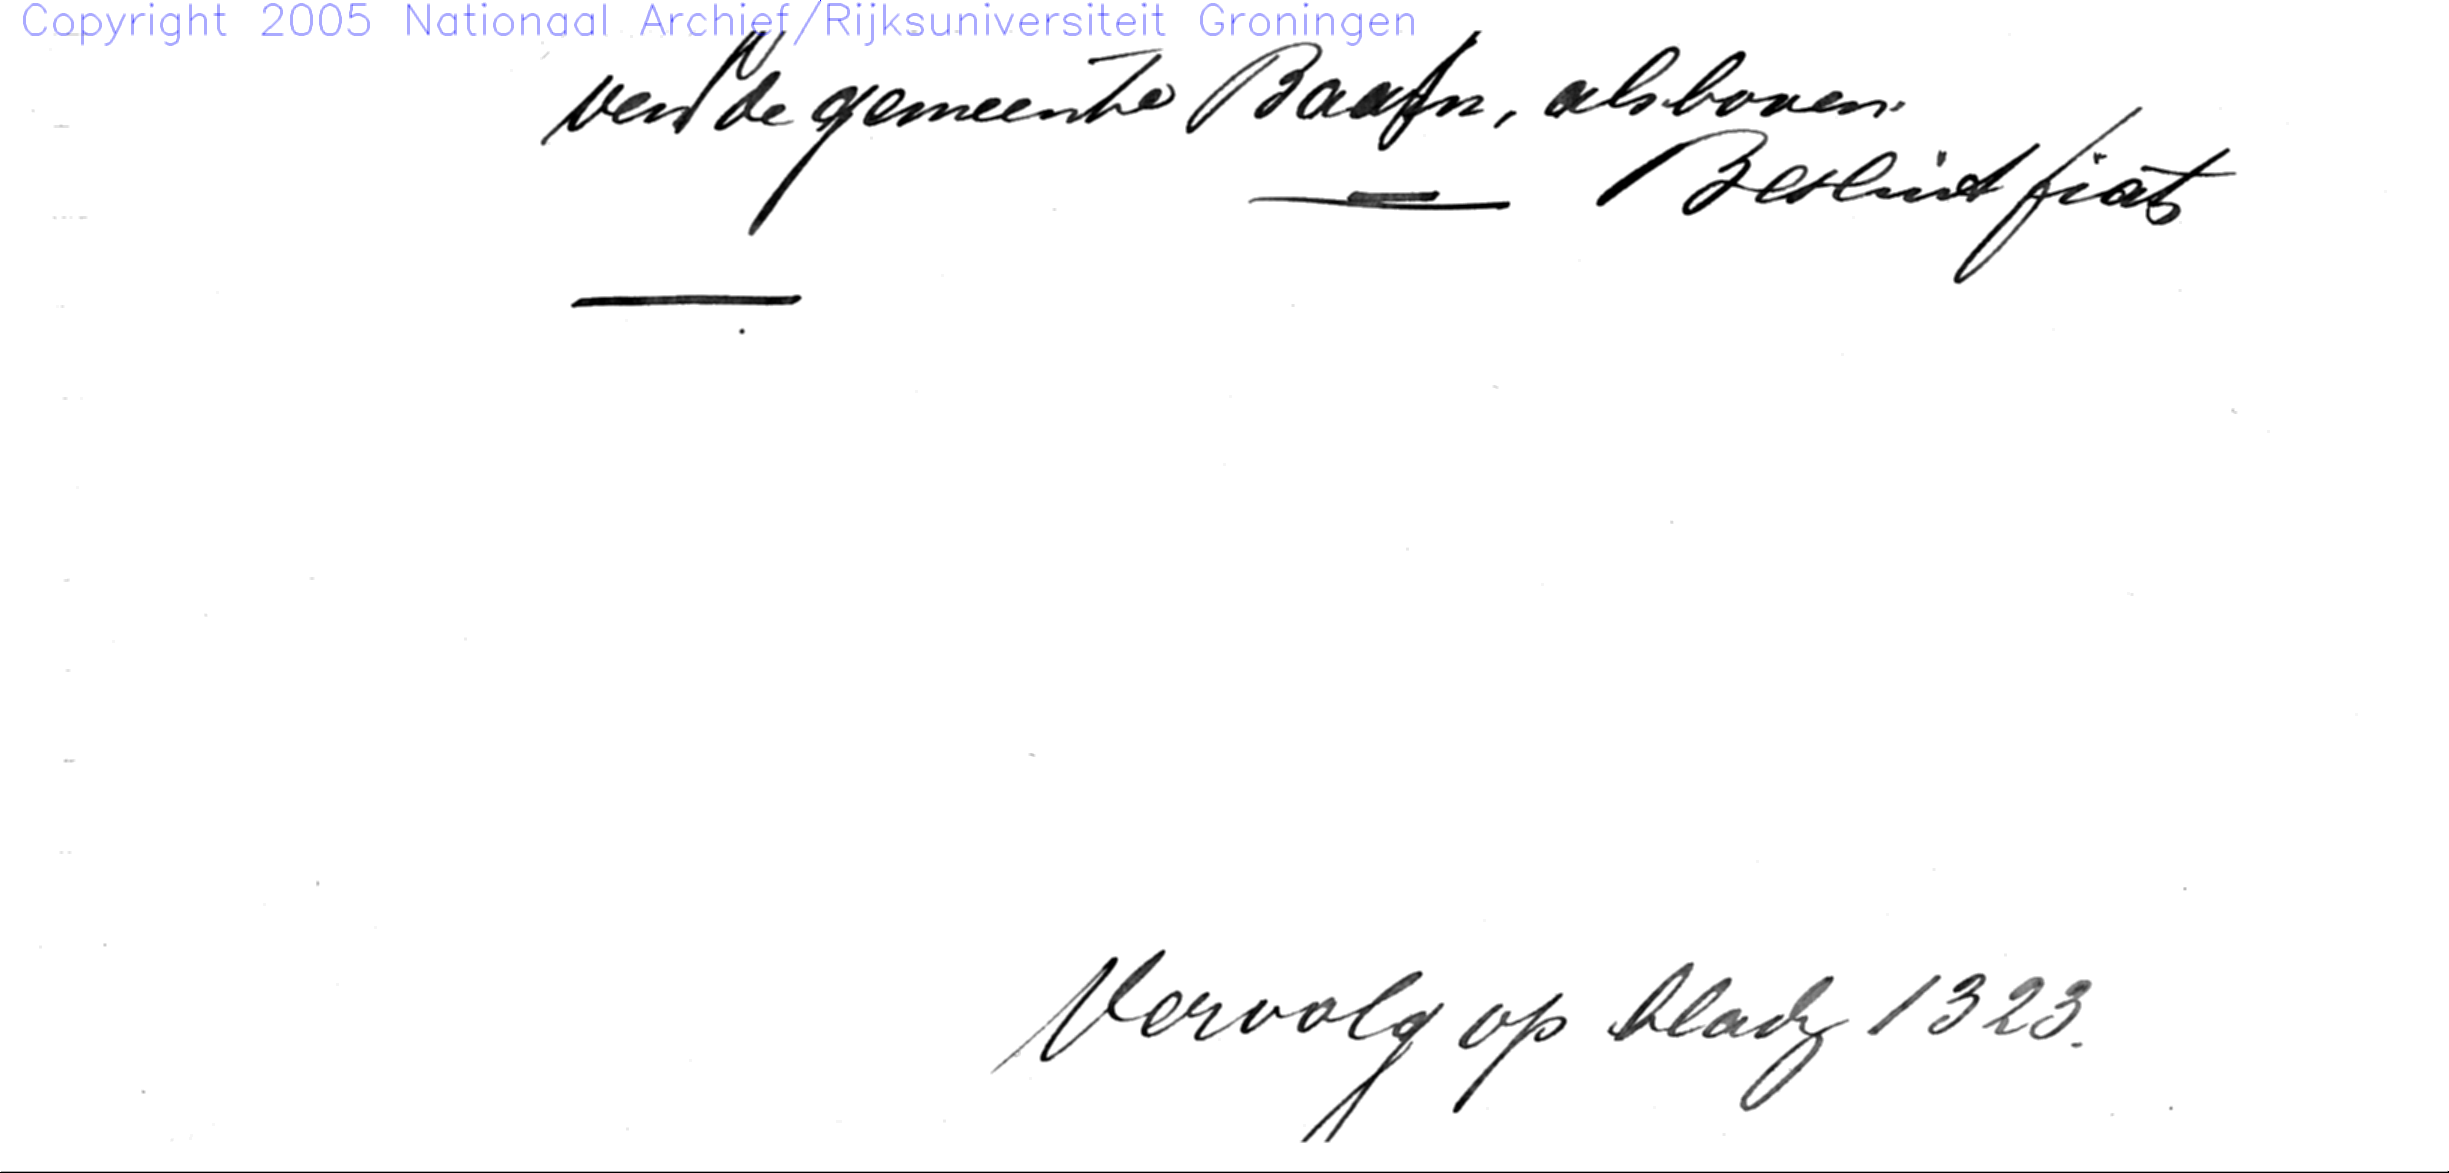 Copyright 2005 Nationaal Archief/Rijksuniversiteit Groningen
de gemeente Baarn, alsboven.
Besluit fiat
Vervolg op bladz 1323.